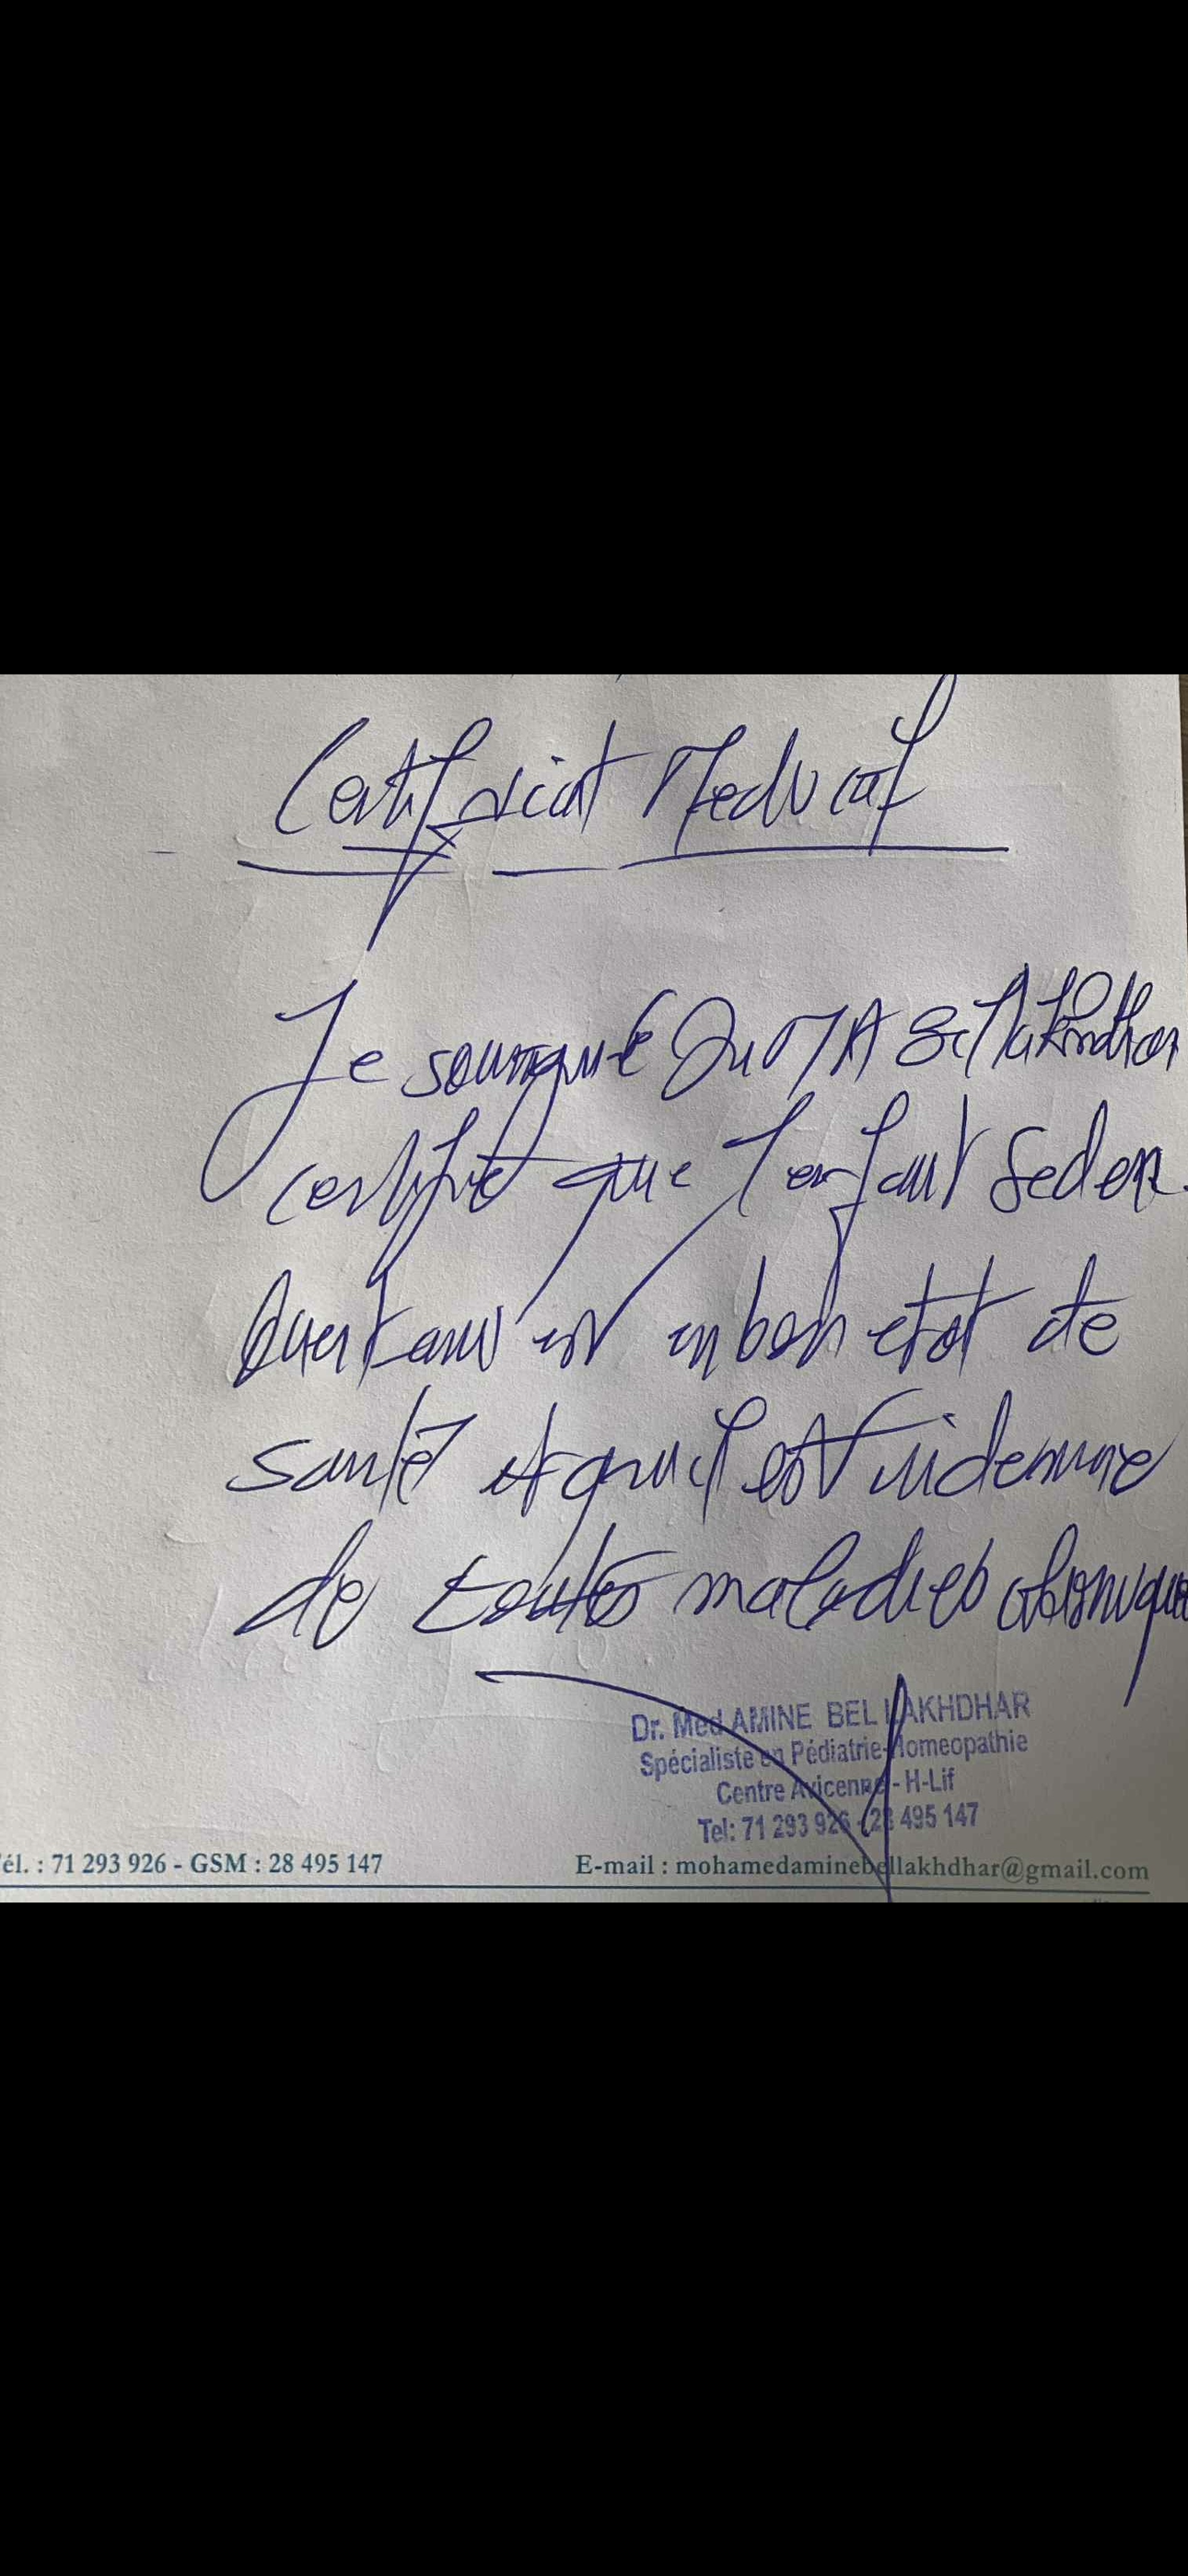 Certificat Medical
Je soussigné Dr M A Bellakhdhar
certifie que l'enfant
est en bon etat de
santé et qu'il est indemne
de toutes maladies chronique
Dr. Med AMINE BEL LAKHDHAR
Spécialiste en Pédiatrie-Homeopathie
Centre Avicenne - H-Lif
Tel: 71 293 926 - 28 495 147
él. : 71 293 926 - GSM : 28 495 147
E-mail : mohamedaminebellakhdhar@gmail.com